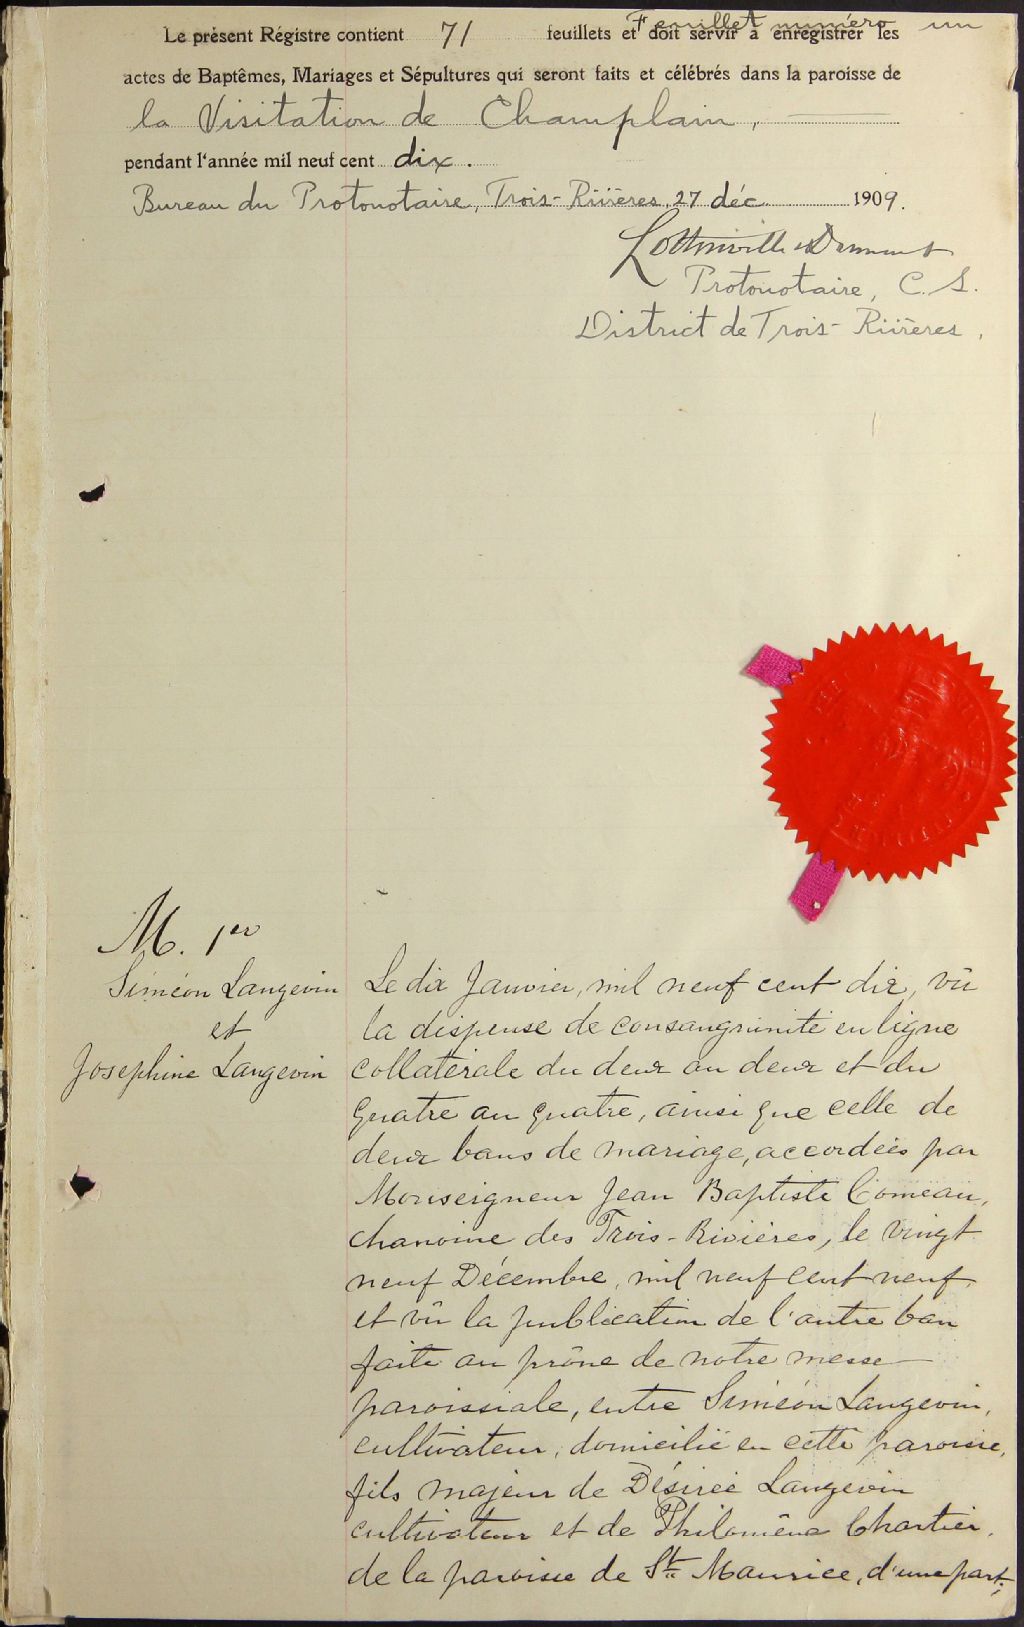 Feuillet numéro un
Le présent Régistre contient 71 feuillets et doit servir à enregistrer les
actes de Baptêmes, Mariages et Sépultures qui seront faits et célébrés dans la paroisse de
la Visitation de Champlain,
pendant l'année mil neuf cent dix.
Bureau du Protonotaire, Trois-Rivières, 27 déc 1909.
Lottinville &
Protonotaire, C. S.
District de Trois-Rivières.
M. 1er
Siméon Langevin
et
Josephine Langevin
Le dix Janvier, mil neuf cent dix, vû
la dispense de consanguinité en ligne
collatérale du deux au deux et du
quatre au quatre, ainsi que celle de
deux bans de mariage, accordées par
Monseigneur Jean Baptiste Comeau,
chanoine des Trois-Rivières, le vingt
neuf Décembre, mil neuf cent neuf,
et vû la publication de l'autre ban
faite au prône de notre messe
paroissiale, entre Siméon Langevin,
cultivateur, domicilié en cette paroisse,
fils majeur de Désiré Langevin
cultivateur et de Philomène Chartier,
de la paroisse de St. Maurice, d'une part;